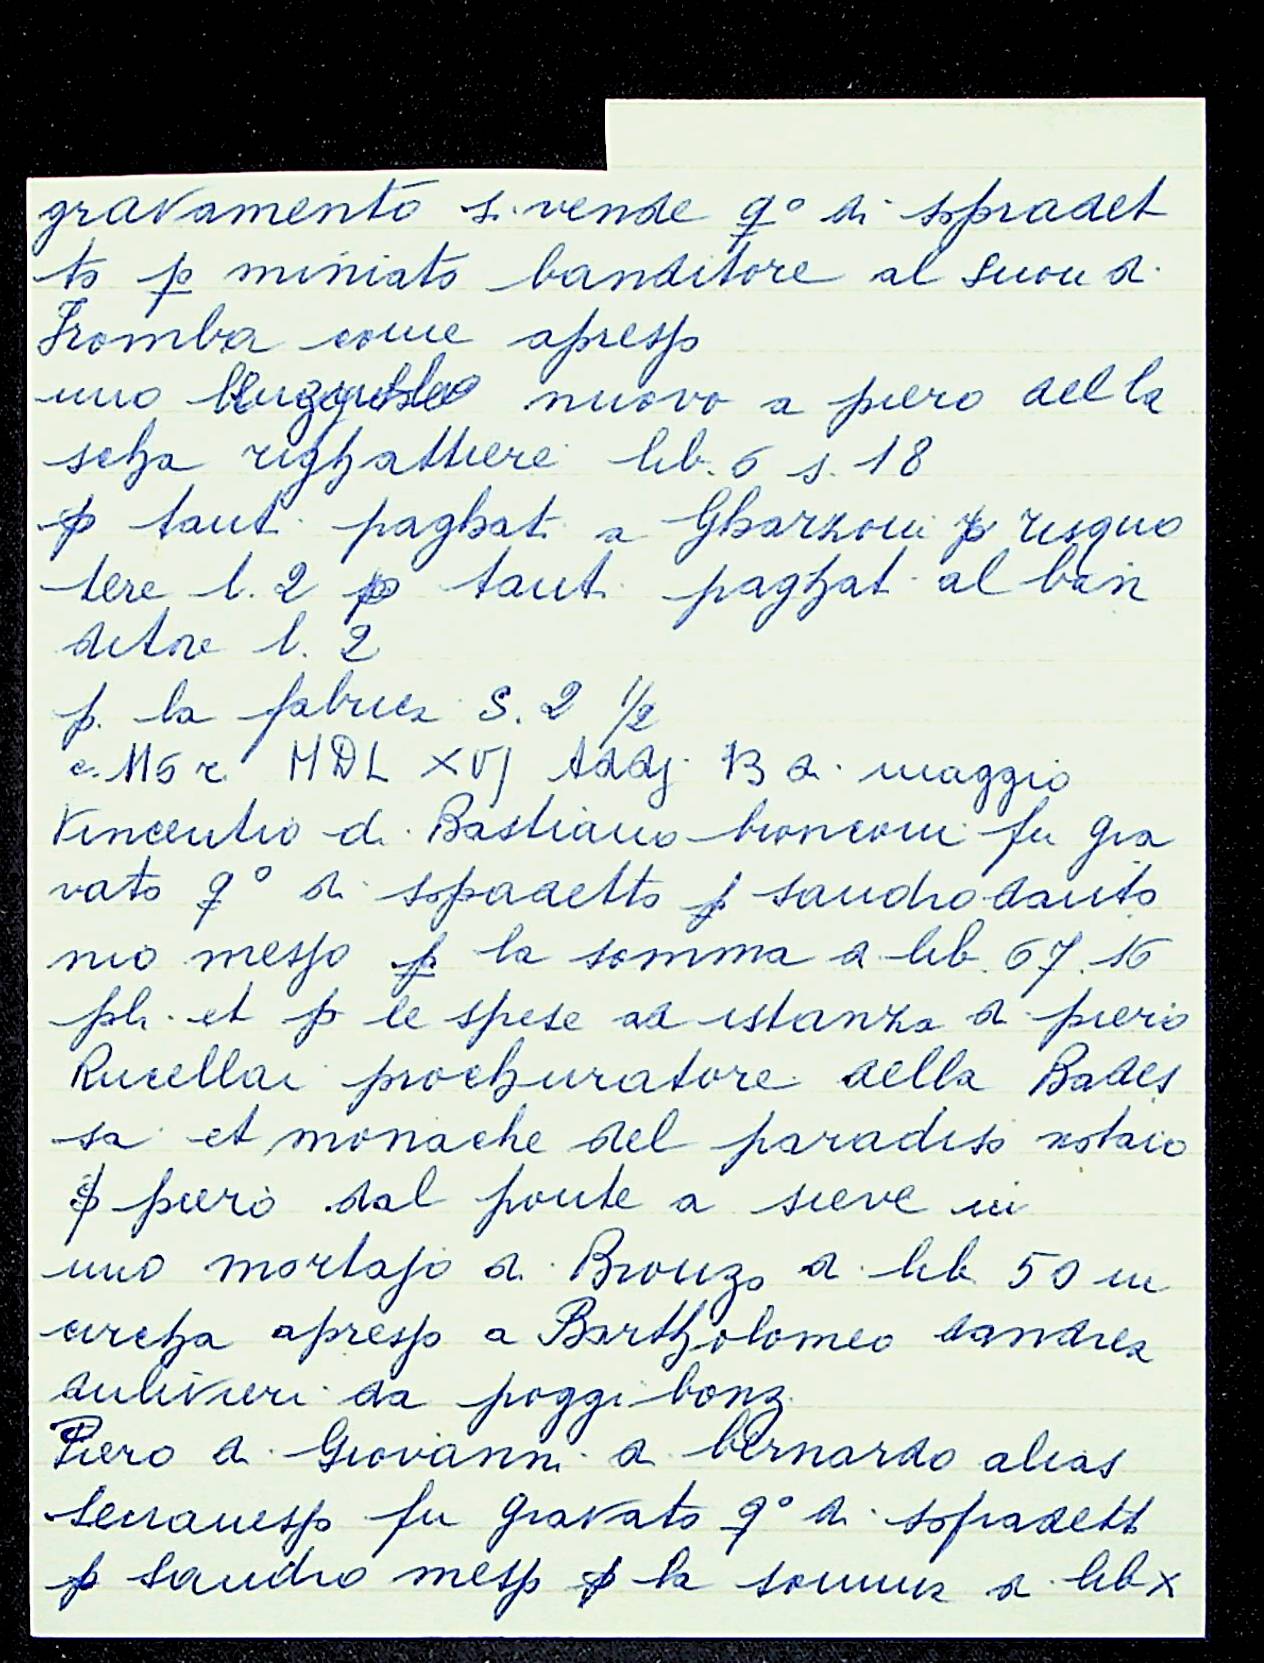 gravamento si vende qº di sopradet
to p miniato banditore al suon di
Tromba come apresso
uno nuovo a piero della
scha righattiere lib. 6 s. 18
p tanti paghati a Gharzoni p risquo
tere l. 2 p tanti paghati al ban
ditore l. 2
p. la fabrica S. 2 1/2
c. 116 r. MDLXVJ Addj 13 di maggio
Vincentio di Bastiano bronconi fu gra
vato qº di sopadetto p sandro danto
nio messo p la somma di lib. 67. 16
pli. et p le spese ad istanza di piero
Rucellai prochuratore della Bades
sa et monache del paradiso notaio
piero dal ponte a sieve in
uno mortajo di Bronzo di lib 50 in
circha apresso a Bartholomeo dandrea
dulivieri da poggibonzi
Piero di Giovanni di bernardo alias
fu gravato qº di sopradetto
p sandro messo p la somma di lib x